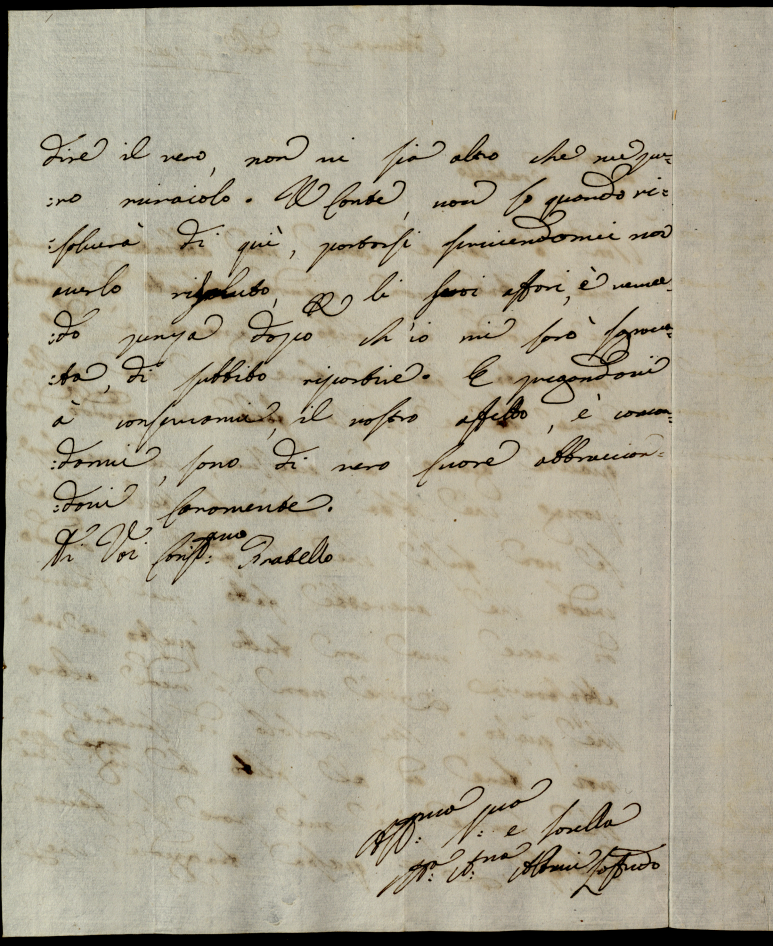 dire il vero, non vi sia altro che me pu=
:ro miraiolo. Il Conte, non so quando ri=
:soluerà di quì, portarsi scriuendomi non
auerlo risoluto, li suoi affari, è
:do dopo ch'io mi sarò sgraua=
:ta, di subbito ripartire. E pregandoui
à conseruarmi, il vostro affetto, è coman=
:darmi, sono di vero cuore abbraccian=
:doui caramente.
Di Voi Caris:mo Fratello
Aff:ma sua
S:a e Sorella
M:a A:na Albani Loffredo